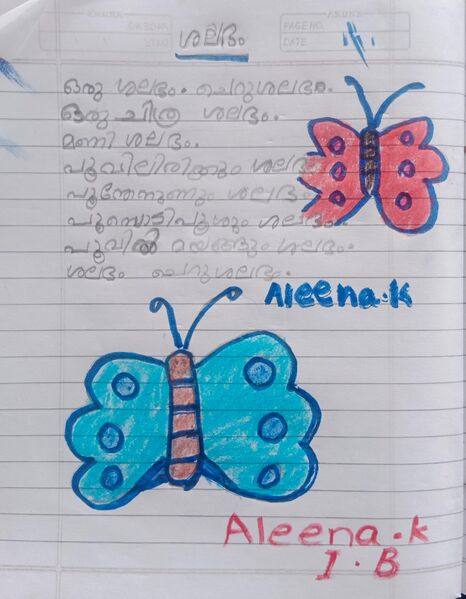 PAGE NO.
DATE
ശലഭം
ഒരു ശലഭം. ചെറുശലഭം.
ഒരു ചിത്ര ശലഭം.
മണി ശലഭം.
പൂവിലിരിക്കും ശലഭം
പൂന്തേനുണ്ണും ശലഭം
പൂമ്പൊടിപൂശും ശലഭം.
പൂവിൽ മയങ്ങും ശലഭം.
ശലഭം ചെറുശലഭം.
Aleena.K
Aleena.K
I.B